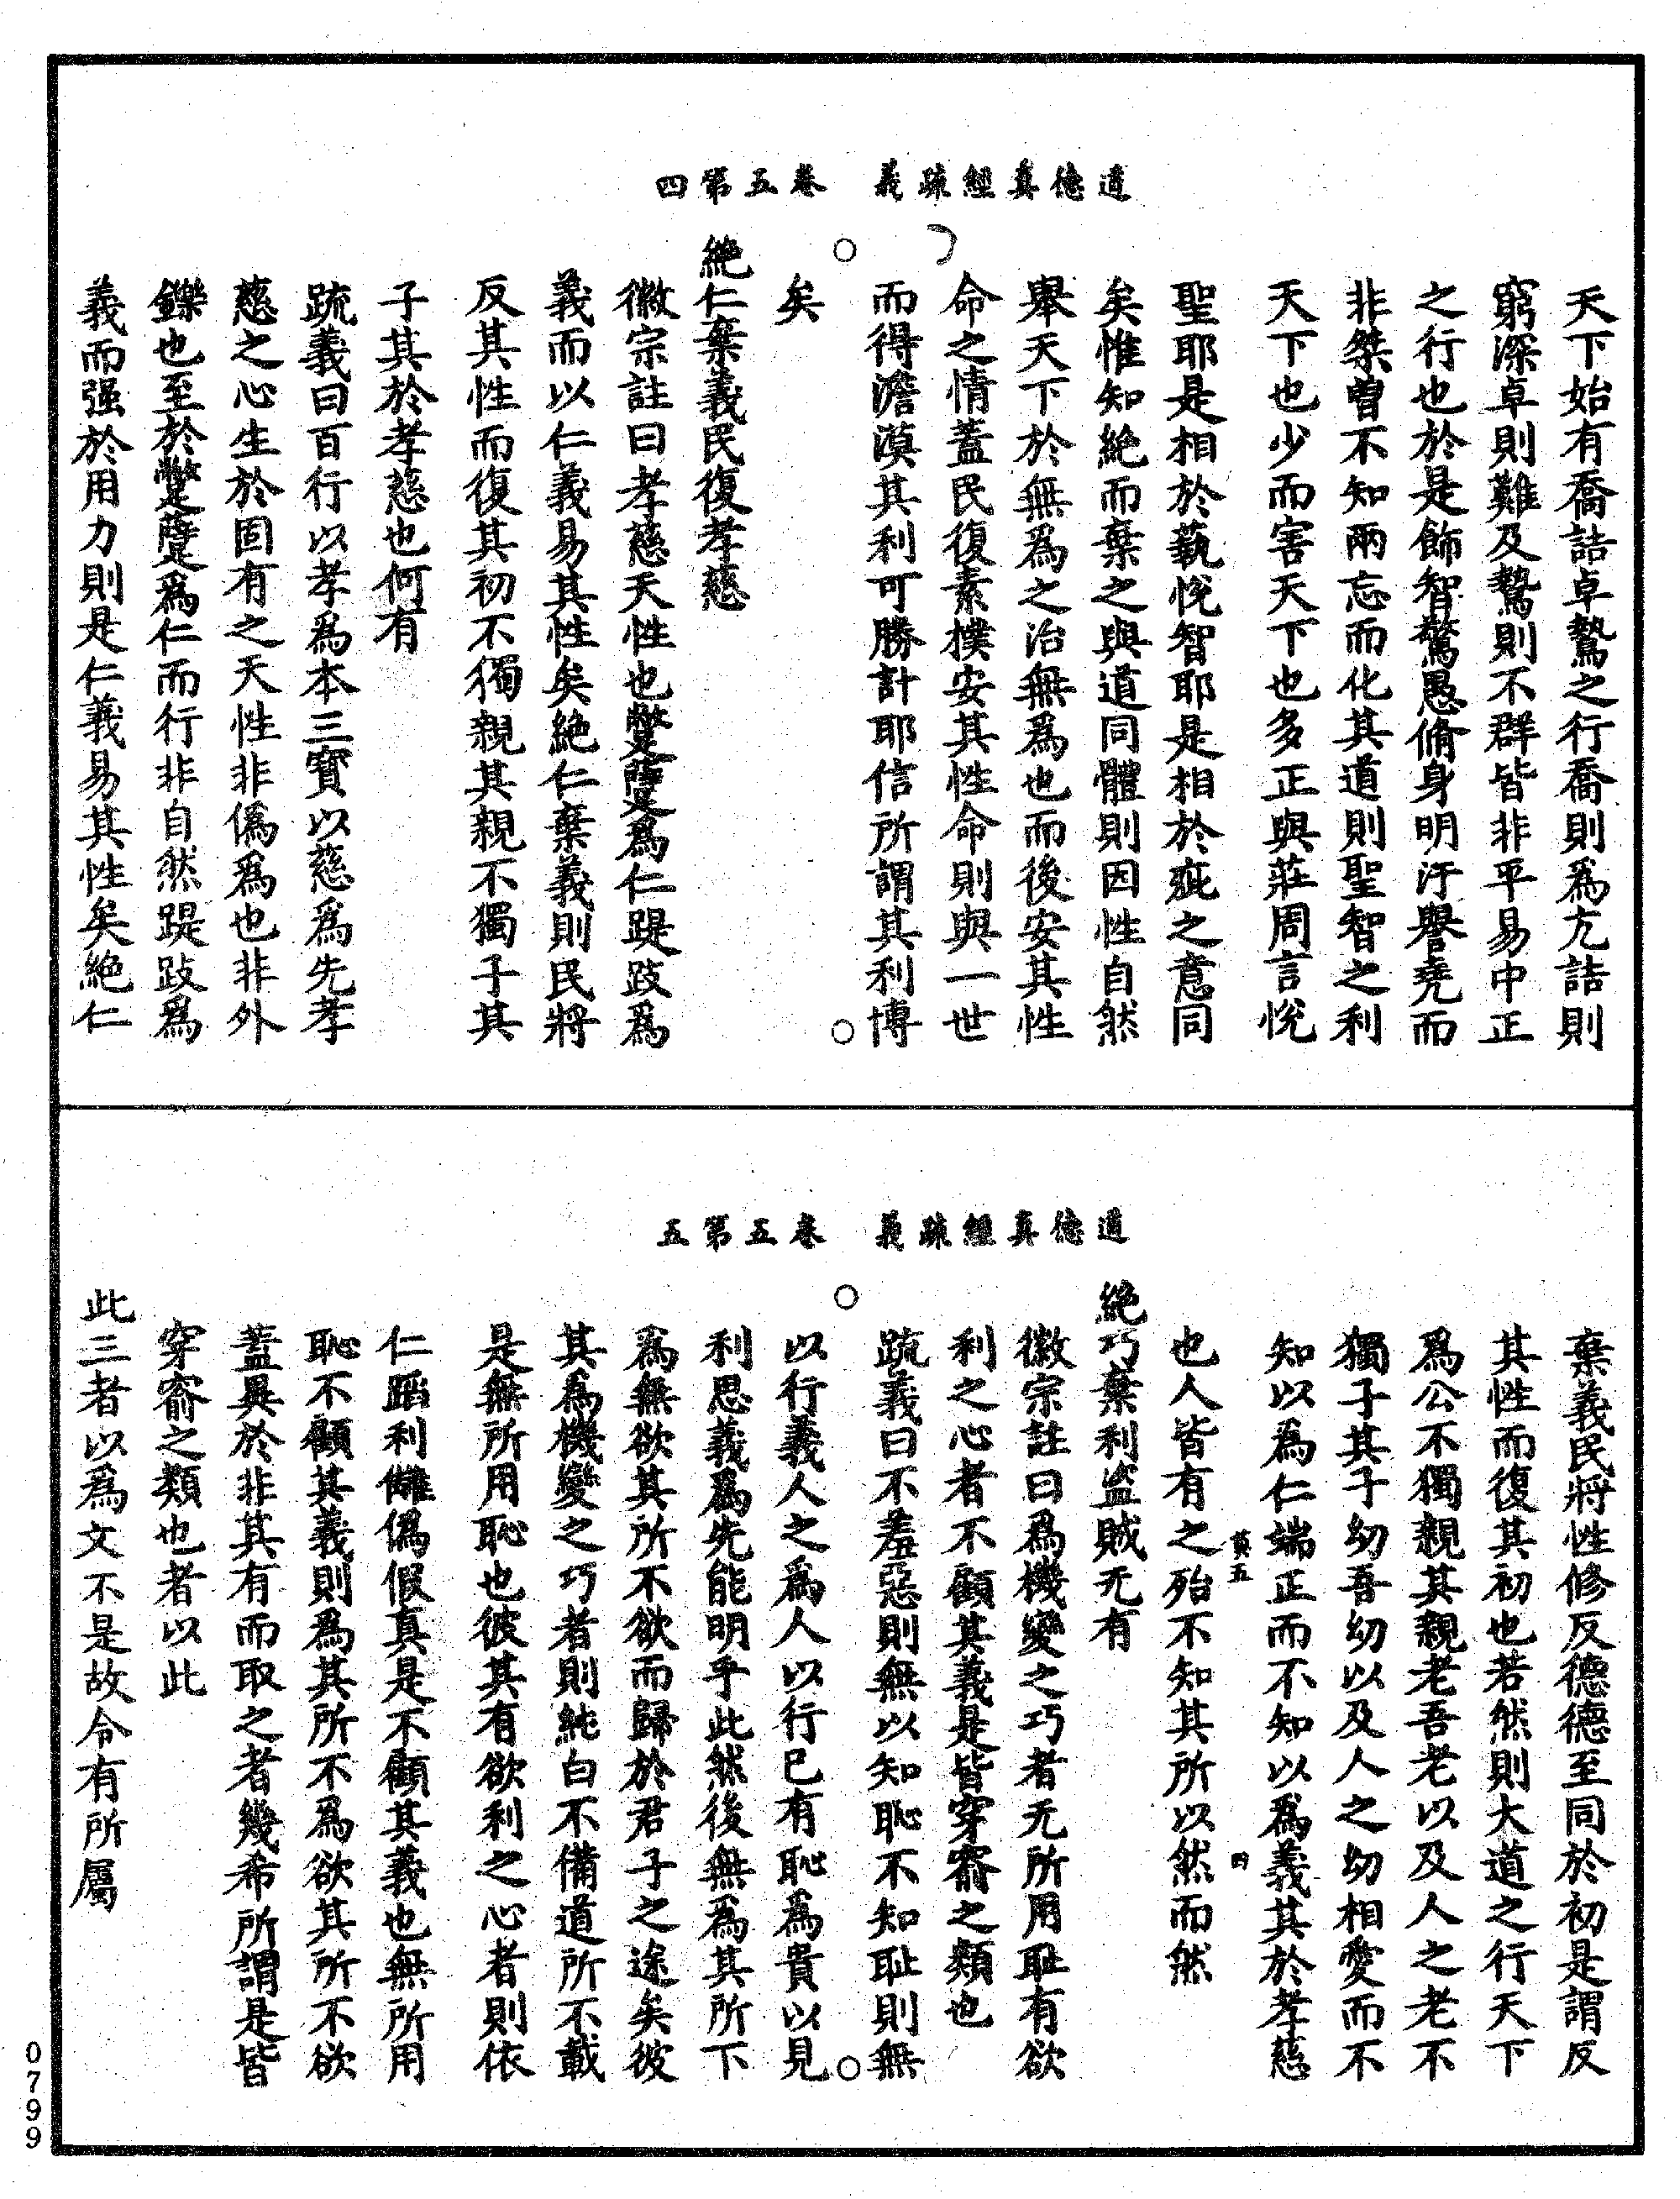 道德真經疏義　卷五第四
天下始有喬詰卓鷙之行喬則為亢詰則
窮深卓則難及鷙則不群皆非平易中正
之行也於是飾智驚愚脩身明汙譽堯而
非桀曽不知兩忘而化其道則聖智之利
天下也少而害天下也多正與莊周言悅
聖耶是相於藝悅智耶是相於疵之意同
矣惟知絶而棄之與道同體則因性自然
舉天下於無為之治無為也而後安其性
命之情蓋民復素樸安其性命則與一世
而得澹漠其利可勝計耶信所謂其利博
矣
絶仁棄義民復孝慈
徽宗註曰孝慈天性也蹩躠為仁踶跂為
義而以仁義易其性矣絶仁棄義則民將
反其性而復其初不獨親其親不獨子其
子其於孝慈也何有
疏義曰百行以孝為本三寶以慈為先孝
慈之心生於固有之天性非偽為也非外
鑠也至於蹩躠為仁而行非自然踶跂為
義而强於用力則是仁義易其性矣絶仁
道德真經疏義　卷五第五
棄義民將性修反德德至同於初是謂反
其性而復其初也若然則大道之行天下
為公不獨親其親老吾老以及人之老不
獨子其子幼吾幼以及人之幼相愛而不
知以為仁端正而不知以為義其於孝慈
莫五　四
也人皆有之殆不知其所以然而然
絶巧棄利盗賊无有
徽宗註曰為機變之巧者无所用耻有欲
利之心者不顧其義是皆穿窬之類也
疏義曰不羞惡則無以知恥不知耻則無
以行義人之為人以行已有恥為貴以見
利思義為先能明乎此然後無為其所下
為無欲其所不欲而歸於君子之途矣彼
其為機變之巧者則純白不備道所不載
是無所用恥也彼其有欲利之心者則依
仁蹈利讎偽假真是不顧其義也無所用
恥不顧其義則為其所不為欲其所不欲
蓋異於非其有而取之者幾希所謂是皆
穿窬之類也者以此
此三者以為文不足故令有所屬
0799